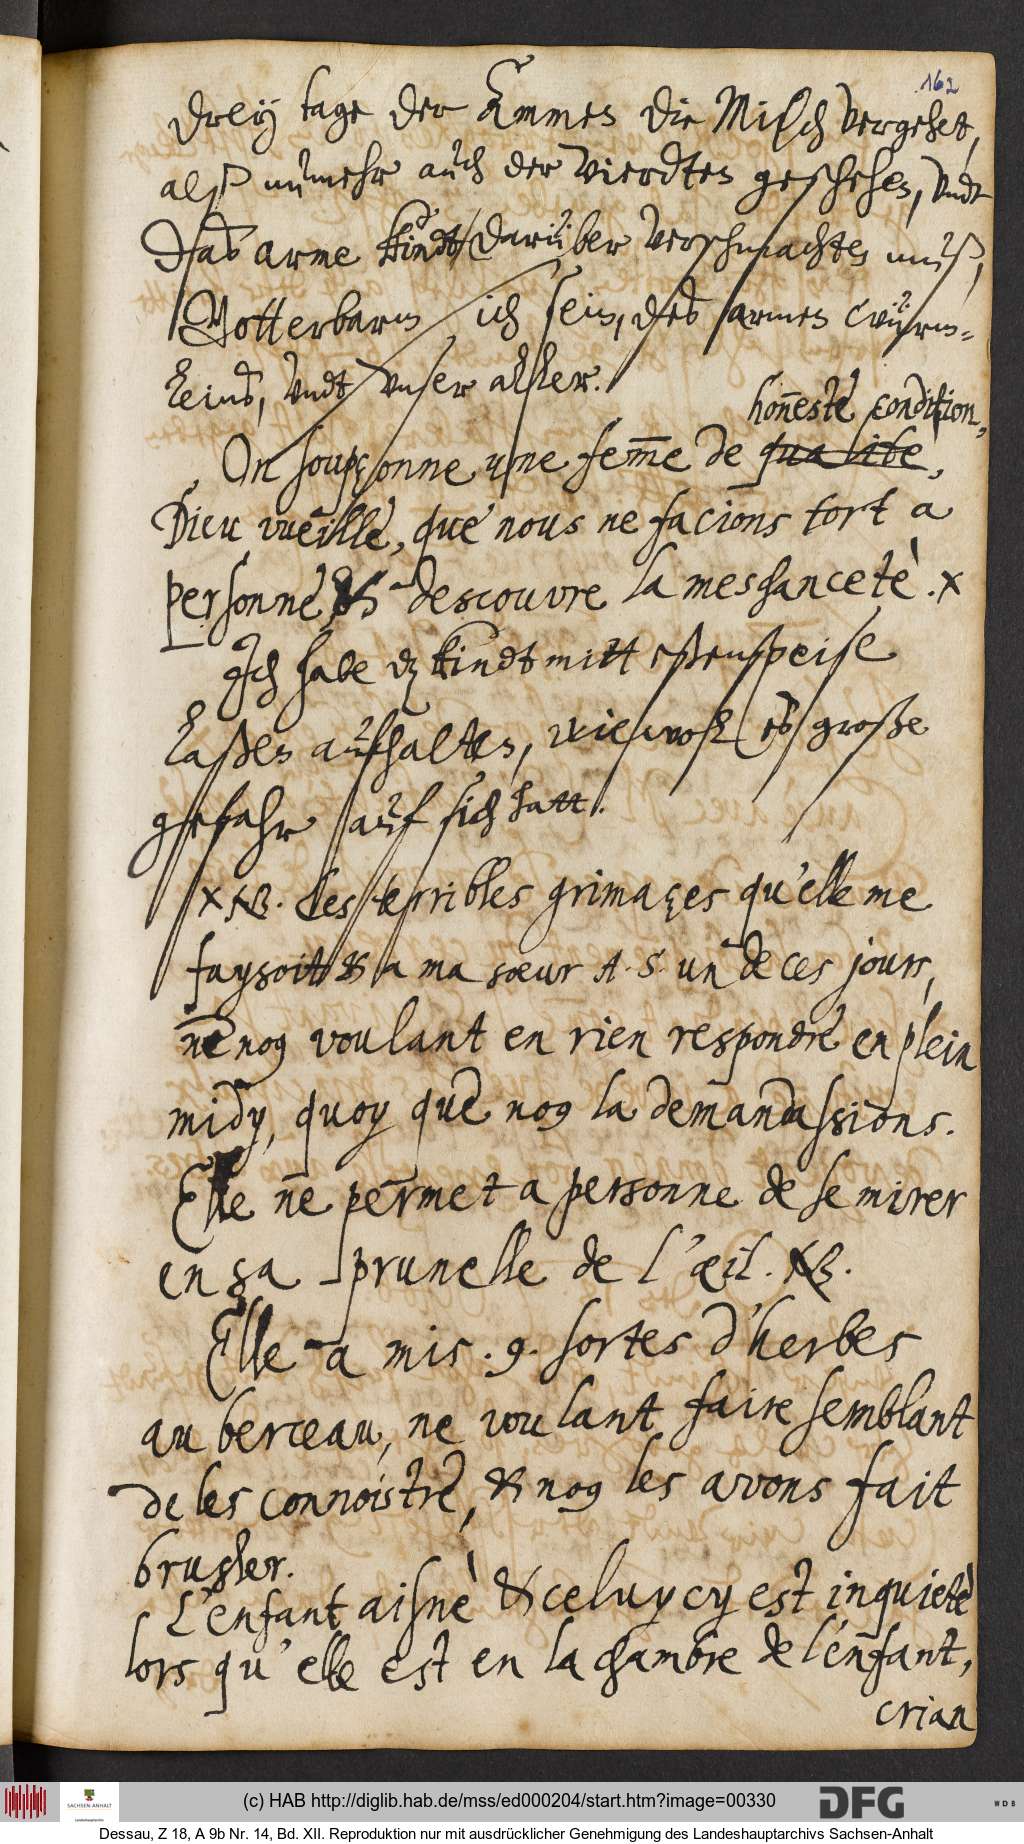 162
drey tage der Ammen die Milch vergehet,
alß nunmehr auch der vierdten geschehen, vndt
das arme kindt darüber verschmachten muß,
Gott erbarm sich sein, des armen würm-
leins, vndt vnser aller.
honneste condition,
On soupçonne une femme de qualite,
Dieu vueille, que nous ne facions tort a
personne, & descouvre la meschancetè. x
Ich habe dz kindt mitt eßenspeise
laßen aufhalten, wiewol es große
gefahr auf sich hatt.
x NB. Les terribles grimaçes qu'elle me
faysoit & a ma sœur A. S. un de ces jours,
ne no9 voulant en rien respondre en plein
midy, quoy que no9 la demandassions.
Elle ne permet a personne de se mirer
en sa prunelle de l'œil. NB.
Elle a mis .9. sortes d'herbes
au berceau, ne voulant faire semblant
de les connoistre, & no9 les avons fait
brusler.
L'enfant aisnè & celuy cy est inquietè
lors qu'elle est en la chambre de l'enfant,
crian
(c) HAB http://diglib.hab.de/mss/ed000204/start.htm?image=00330
SACHSEN-ANHALT
Landeshauptarchiv
DFG
WDB
Dessau, Z 18, A 9b Nr. 14, Bd. XII. Reproduktion nur mit ausdrücklicher Genehmigung des Landeshauptarchivs Sachsen-Anhalt